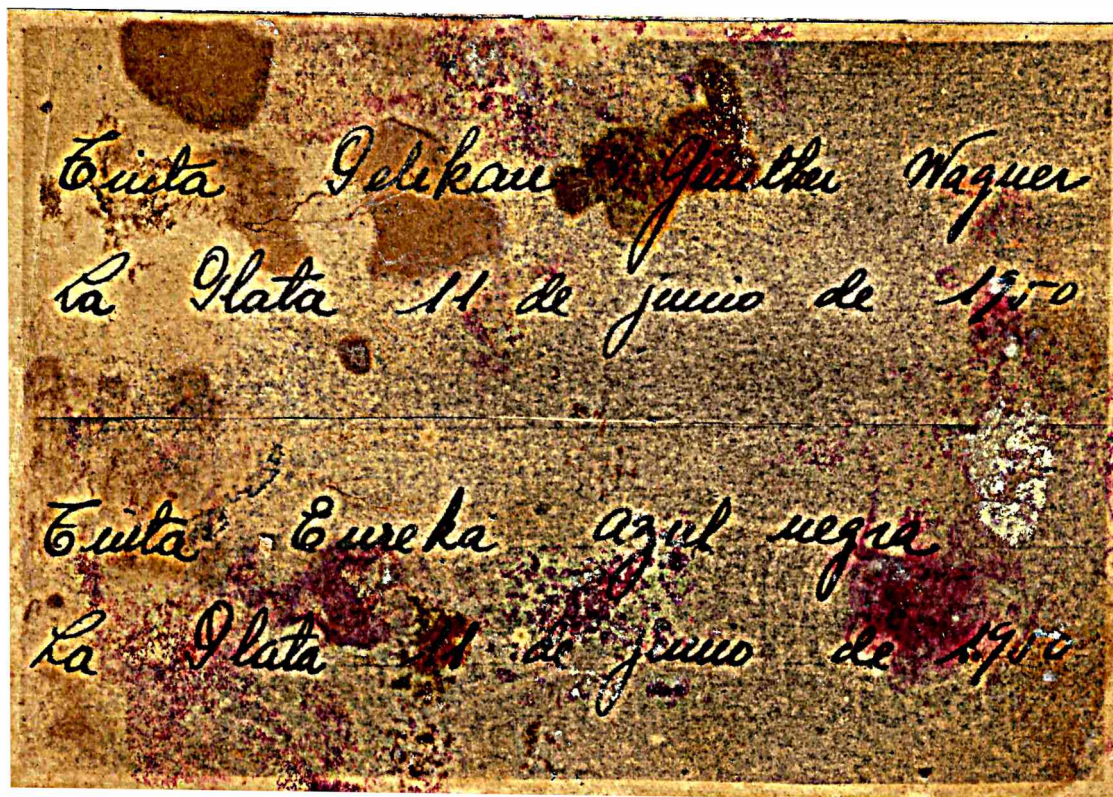 Tinta Pelikan Günther Wagner
La Plata 11 de junio de 1950
Tinta Eureka azul negra
La Plata 11 de junio de 1950